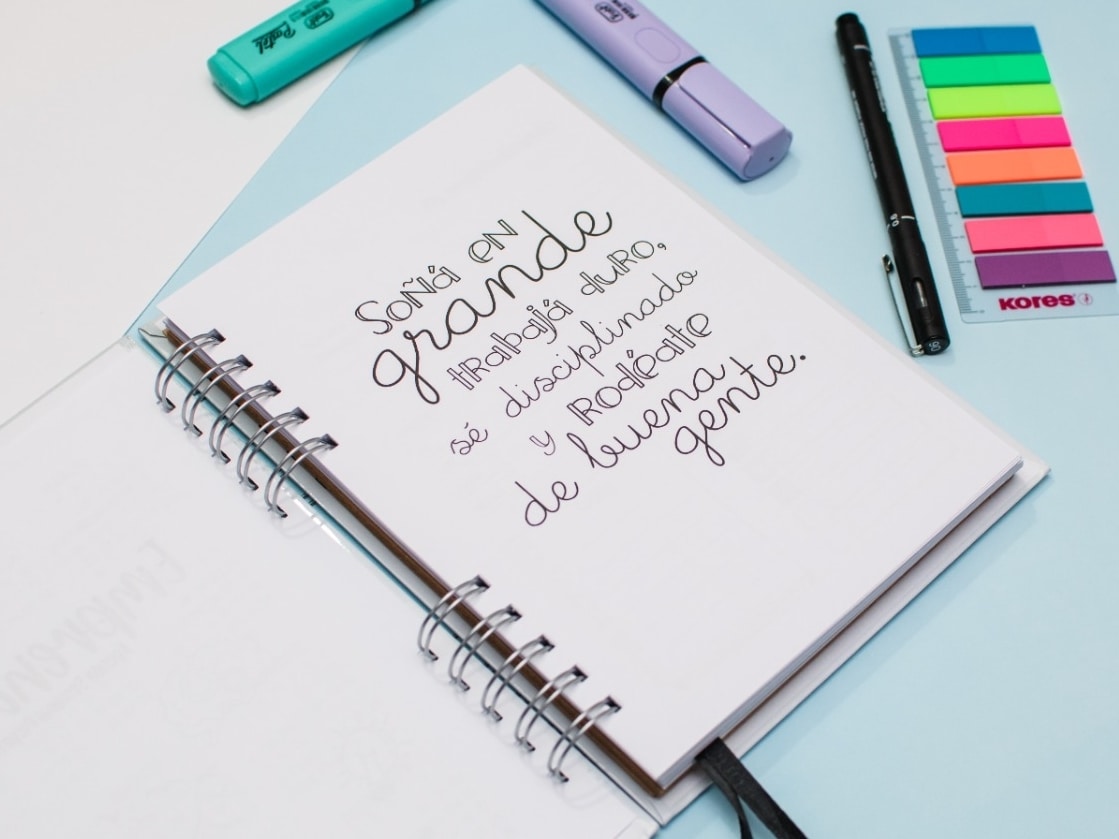 Pastel
Soñá en
grande
trabajá duro,
sé disciplinado
y rodéate
de buena
gente.
KORES